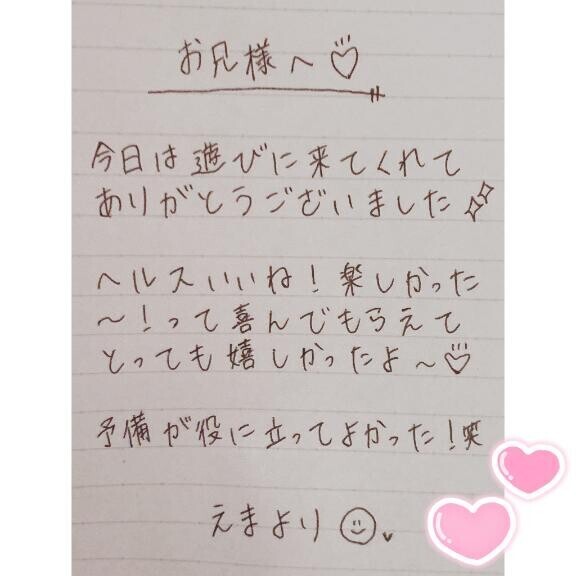 お兄様へ♡
今日は遊びに来てくれて
ありがとうございました✨
ヘルスいいね！楽しかった
〜！って喜んでもらえて
とっても嬉しかったよ〜♡
予備が役に立ってよかった！笑
えまより☺